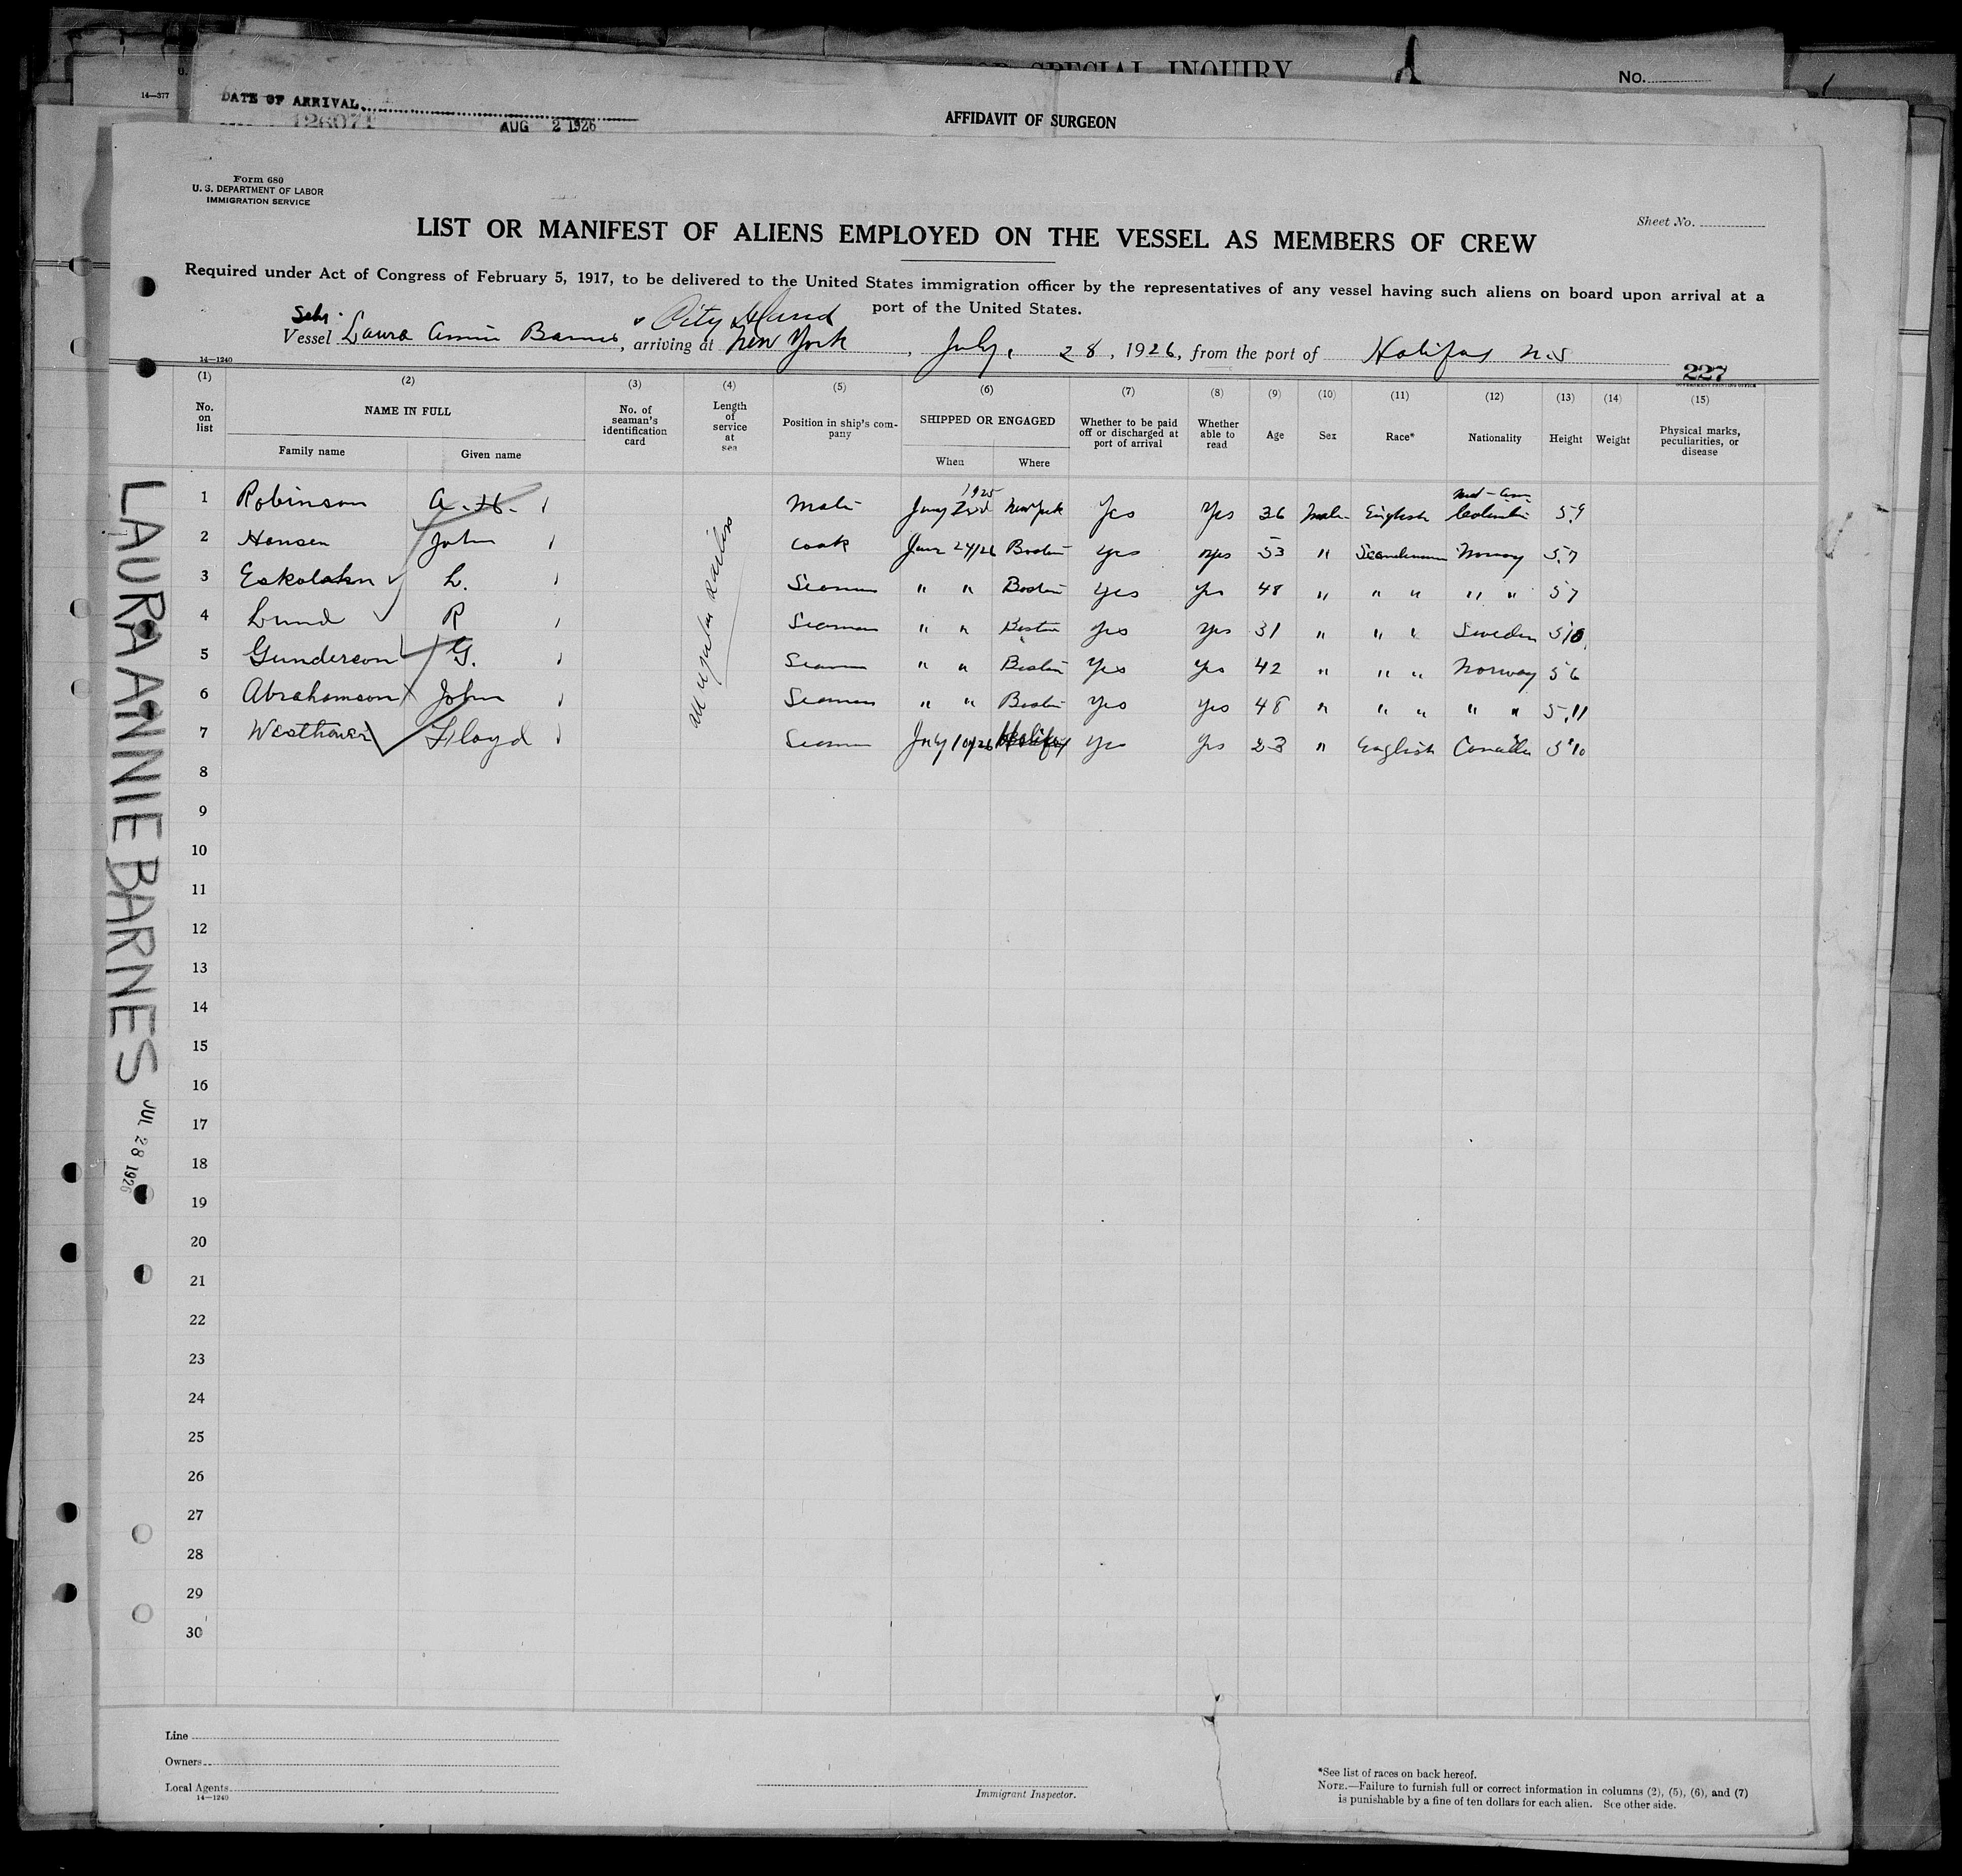 FOR SPECIAL INQUIRY
No.
14—377
DATE OF ARRIVAL
126071
AUG 2 1926
AFFIDAVIT OF SURGEON
Form 680
U. S. DEPARTMENT OF LABOR
IMMIGRATION SERVICE
Sheet No.
LIST OR MANIFEST OF ALIENS EMPLOYED ON THE VESSEL AS MEMBERS OF CREW
Required under Act of Congress of February 5, 1917, to be delivered to the United States immigration officer by the representatives of any vessel having such aliens on board upon arrival at a
port of the United States.
Schr. City Island
Vessel Laura Annie Barnes, arriving at New York, July, 28, 1926, from the port of Halifax N.S
14—1240
227
GOVERNMENT PRINTING OFFICE
(1) (2) (3) (4) (5) (6) (7) (8) (9) (10) (11) (12) (13) (14) (15)
No. on list NAME IN FULL No. of seaman's identification card Length of service at sea Position in ship's company SHIPPED OR ENGAGED Whether to be paid off or discharged at port of arrival Whether able to read Age Sex Race* Nationality Height Weight Physical marks, peculiarities, or disease
Family name Given name When Where
1 Robinson A. H. Mate 1925 New York Yes Yes 36 Male English 5.9
2 Hansen John Cook 24/26 Boston Yes Yes 53 " Scandinavian Norway 5.7
3 L. Seaman " " Boston Yes Yes 48 " " " " " 5 7
4 Lund R Seaman " " Boston Yes Yes 31 " " " Sweden 5/8
5 Gunderson G. Seaman " " Boston Yes Yes 42 " " " Norway 5 6
6 Abrahamson John Seaman " " Boston Yes Yes 48 " " " " " 5.11
7 Westhaver Floyd Seaman July 10/26 Halifax Yes Yes 23 " English Canada 5'10
8
9
10
11
12
13
14
15
16
17
18
19
20
21
22
23
24
25
26
27
28
29
30
LAURA ANNIE BARNES JUL 28 1926
Line
Owners
Local Agents
14—1240
Immigrant Inspector.
*See list of races on back hereof.
NOTE.—Failure to furnish full or correct information in columns (2), (5), (6), and (7)
is punishable by a fine of ten dollars for each alien. See other side.